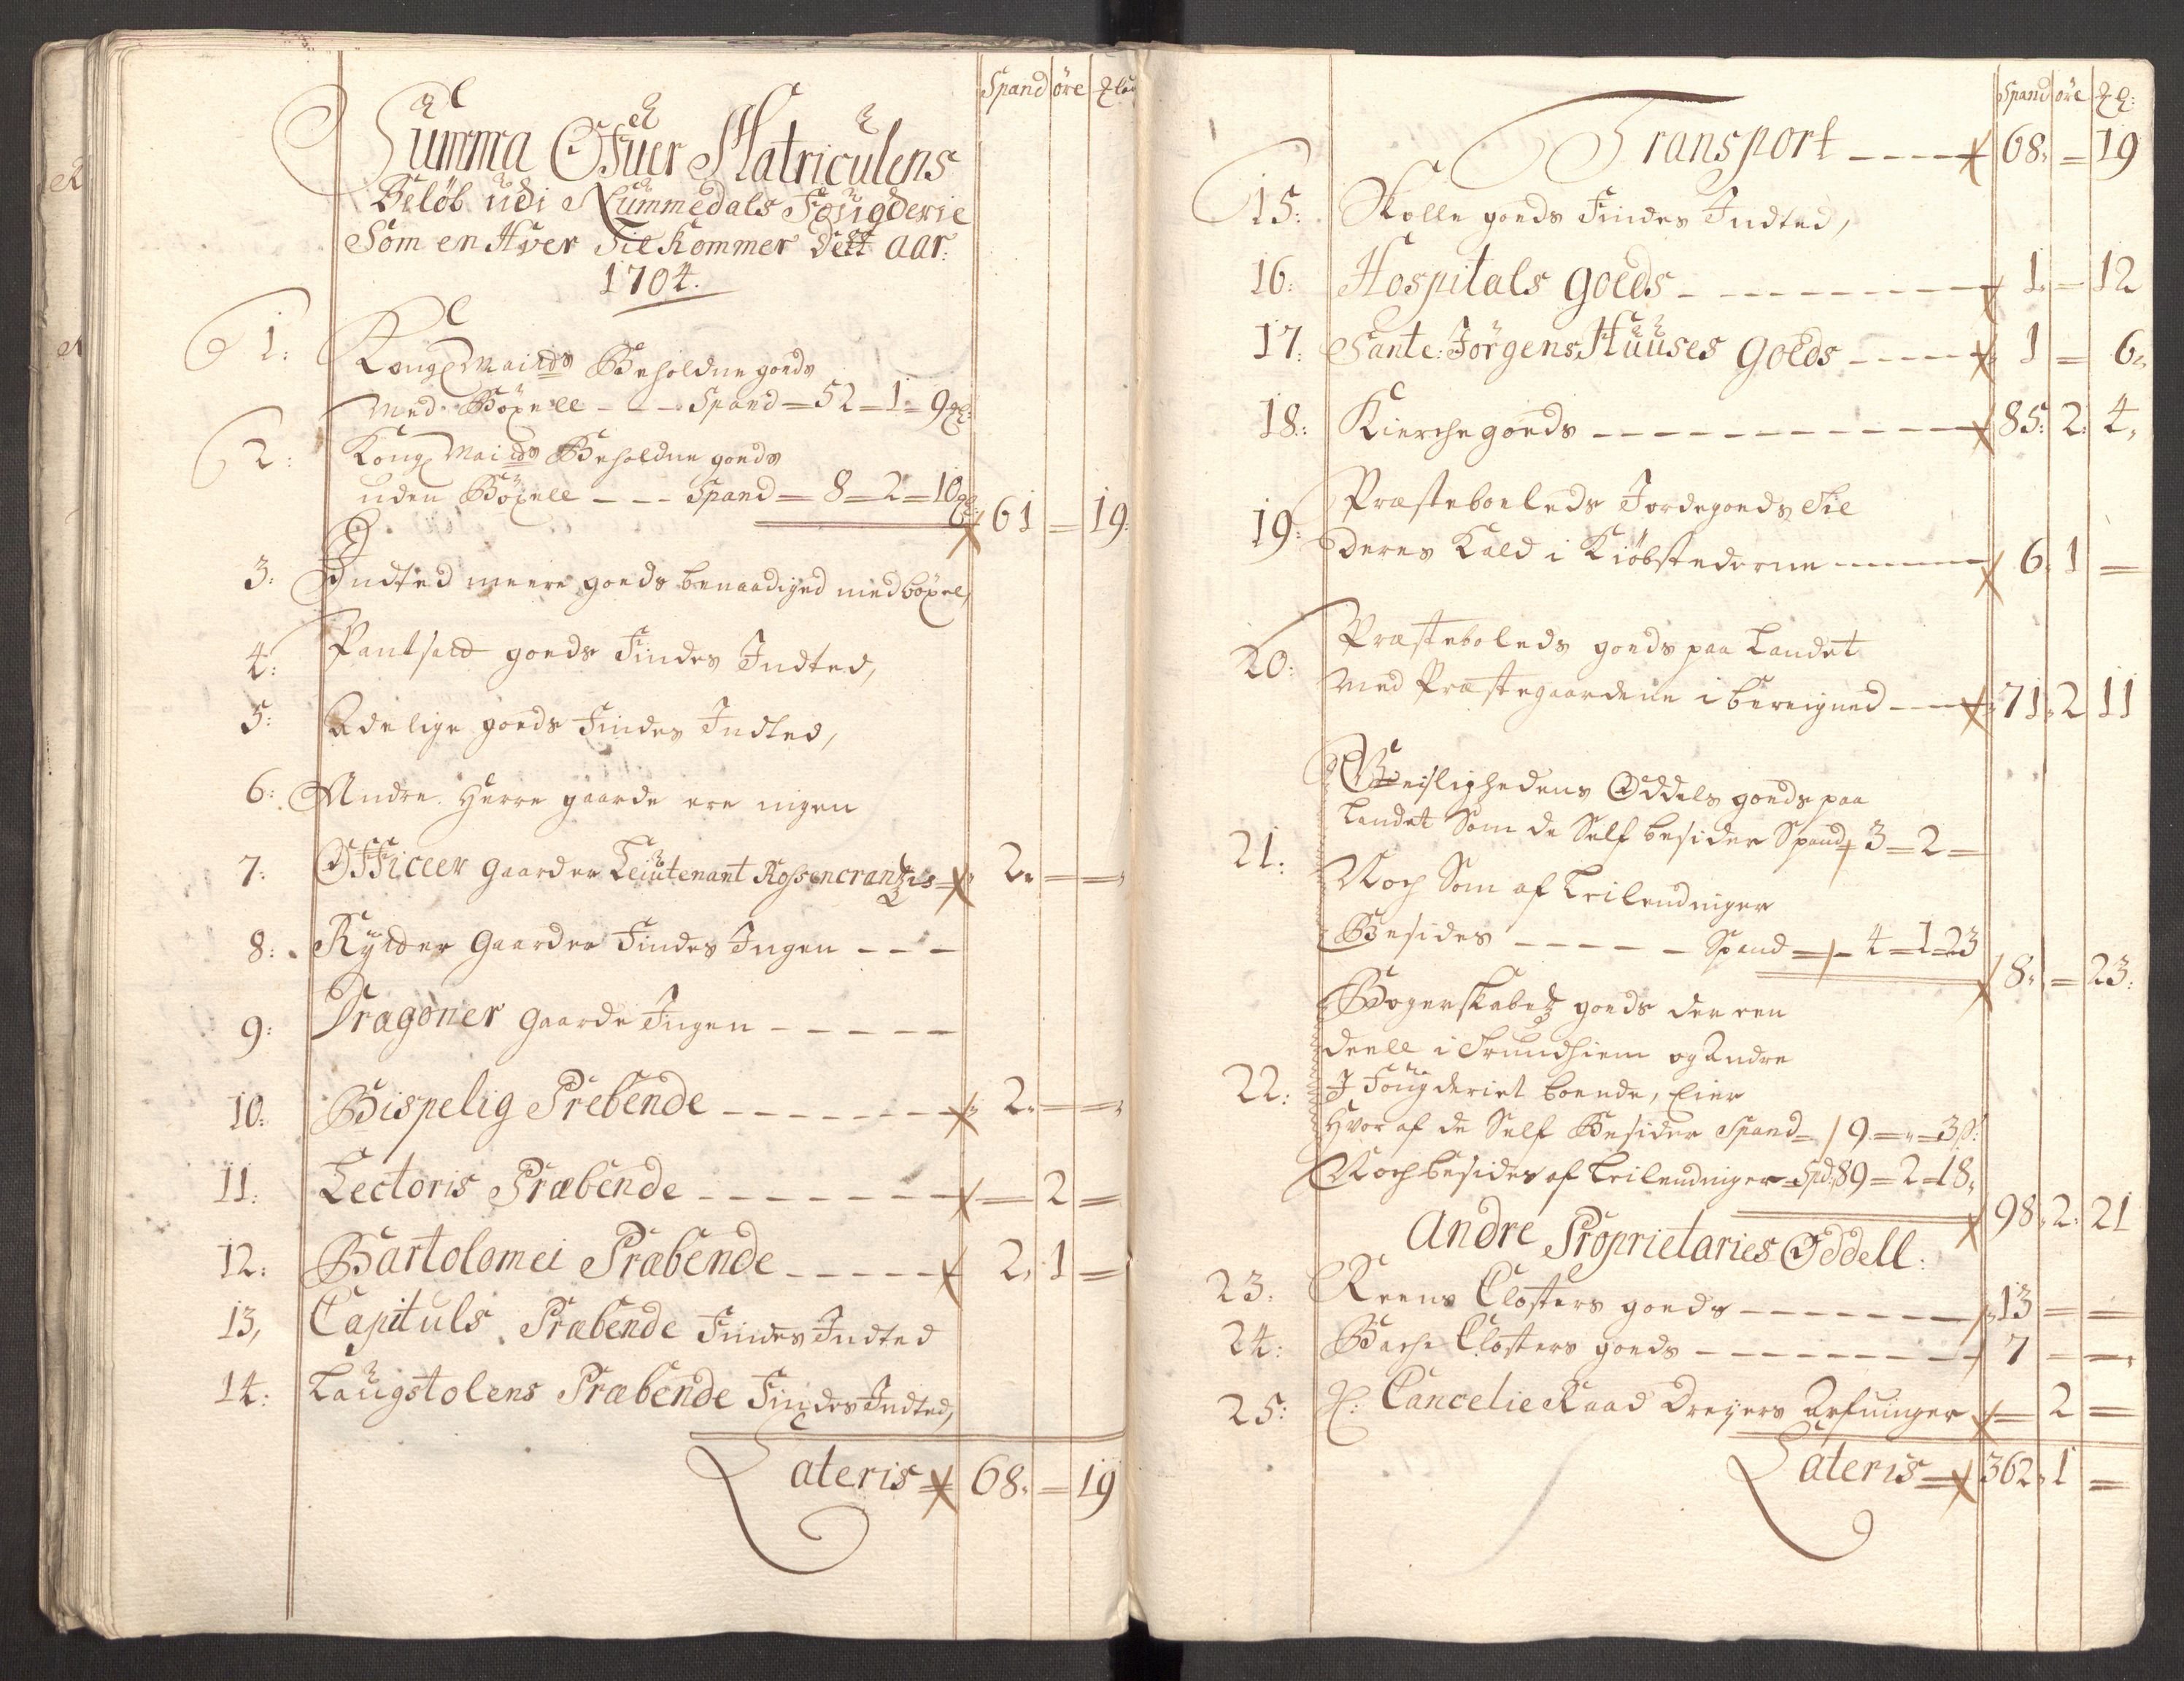 Spand öre
Summa Ofuer Matriculens
Beløb udi Nummedals Fougderie
Som en Hver Til Kommer Dett aar:
1704.
1: Kongl Maits Beholdne goeds
Med Böxell - - - Spand = 52 = 1 = 9
2: Kongl Maits Beholdne goeds
uden Böxell - - - Spand = 8 = 2 = 10 61 = 19:
3: Indted meere goeds benaadiged med böxel,
4: Pantsatt goeds Findes Indted,
5: Adelige goeds Findes Indted,
6: Andre Herre gaarde ere ingen
7: Officeer gaarder Leiutenant Rossencrantzis 2 = =
8: Rytter Gaarder Findes Ingen - - -
9: Dragoner gaarde Ingen - - - - -
10: Bispelig Prebende - - - - - - 2 = =
11: Lectoris Præbende - - - - - - = 2 =
12: Bartolomei Præbende - - - - - 2, 1 =
13, Capituls Præbende Findes Indted
14: Laugstolens Præbende Findes Indted,
Lateris 68, = 19
Spand öre
Transport - - - - 68, = 19
15: Skolle goeds Findes Indted,
16: Hospitals goeds - - - - - - - - 1 = 12
17: Sante: Jörgens Huuses goeds - - - - 1 = 6
18: Kierche goeds - - - - - - - - - - 85: 2: 4,
19: Præsteboeleds Jordegoeds til
deres Kald i Kiöbstederne - - - - - 6, 1 =
20: Præsteboleds goeds paa Landet
med Præstegaardene i bereigned - - - 71, 2 11
21: Geislighedens Oddels goeds paa
Landet Som de Self besider Spand 3 = 2 =
Noch Som af Leilendinger
Besides - - - - - Spand = 4 = 1 = 23 8, = 23:
22: Borgerskabetz goeds der een
deell i Trundhiem og Andre
I Fougderiet boende, Eier
Hvor af de Self Besider Spand = 9 = „ = 3
Noch besides af Leilendinger Spd: 89 = 2 = 18, 98, 2: 21
Andre Proprietaries Oddell:
23: Reens Closters goeds - - - - - - - 13 = =
24: Bache Closters goeds - - - - - - - 7 = =
25: H: Cancelie Raad Dreyers Arfuinger = 2 =
Lateris = 362, 1 =